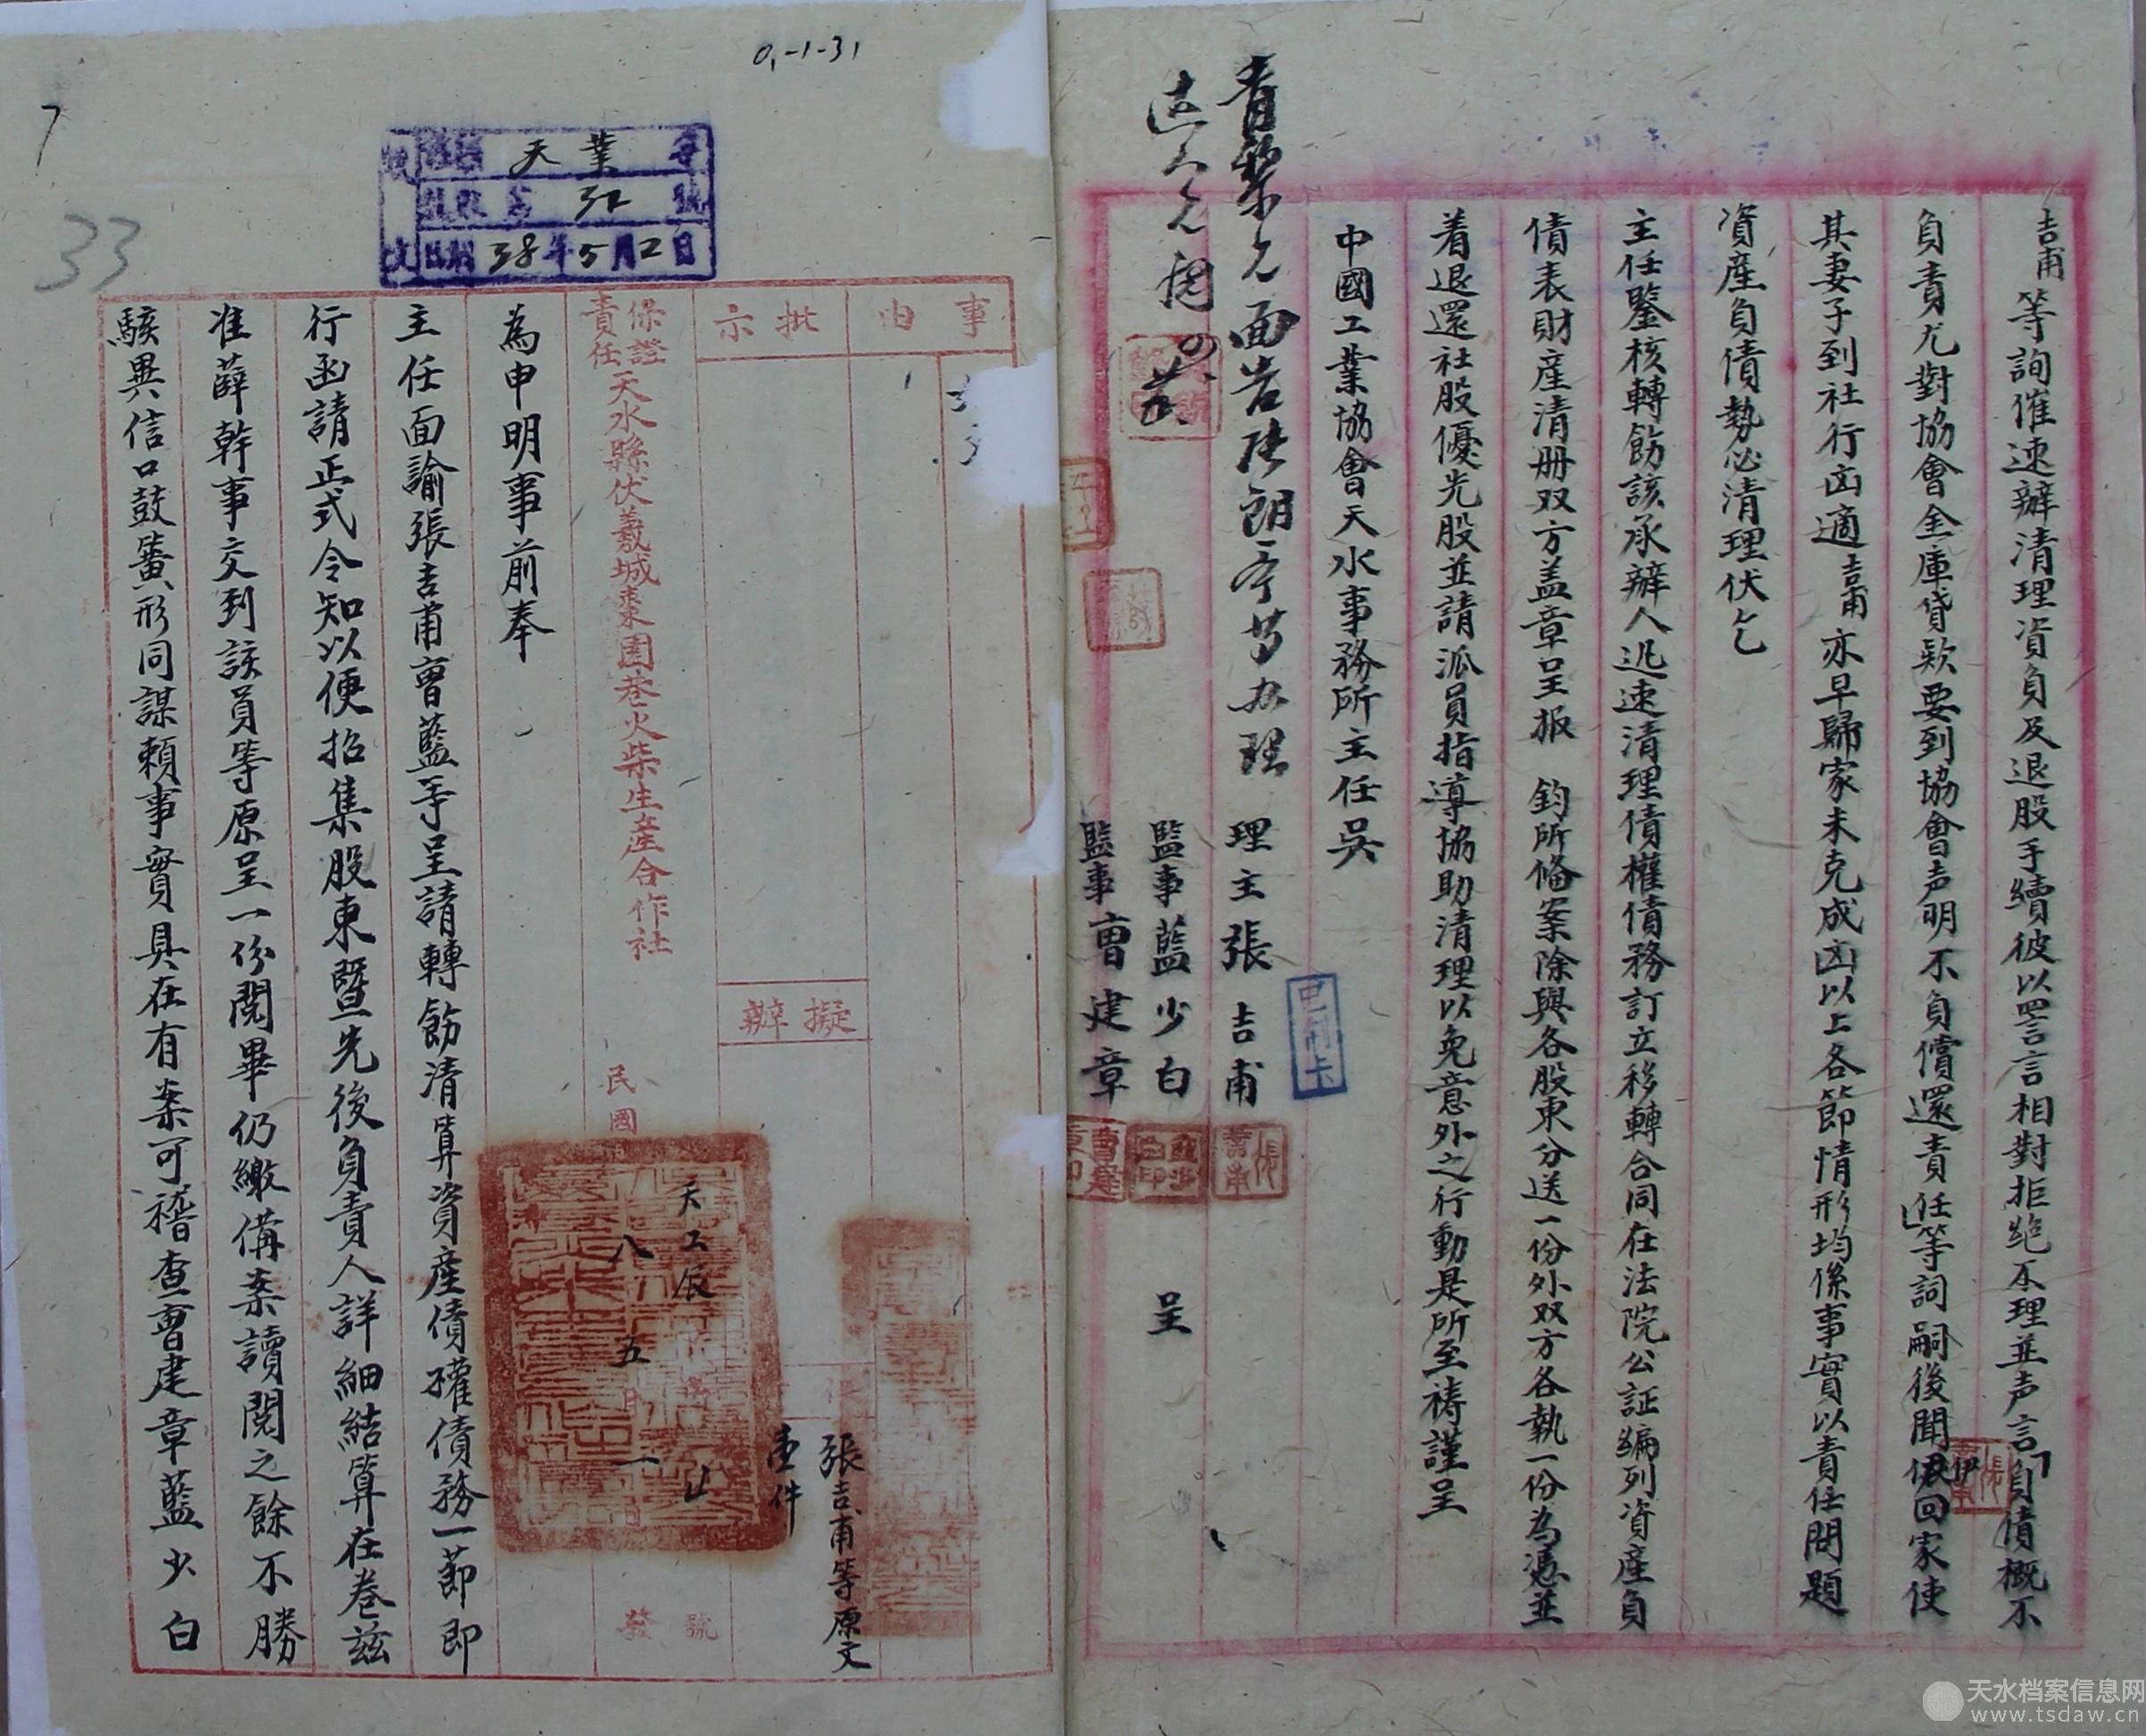 吉甫等詢催速辦清理資負及退股手續彼以詈言相對拒絶不理並声言負債概不
負責尤對協會金庫貸欵要到協會声明不負償還責任等詞嗣後聞伊回家使
其妻子到社行凶適吉甫亦早歸家未克成凶以上各節情形均係事實以責任問題
資產負債勢必清理伏乞
主任鑒核轉飭該承辦人迅速清理債權債務訂立移轉合同在法院公証編列資產負
債表財產清册双方盖章呈报 鈞所偹案除與各股東分送一份外双方各執一份為憑並
着退還社股優先股並請派員指導協助清理以免意外之行動是所至禱謹呈
中國工業協會天水事務所主任吳
理主張吉甫
監事藍少白 呈
監事曹建章
面告
办理
已制卡
0,-1-31
7
33
天業字
號
38年5月2日
事由
批示
擬辦
張吉甫等原文
壹件
保證責任天水縣伏羲城棗園巷火柴生產合作社
民國
天工辰
八
五月二
發
號
為申明事前奉
主任面諭張吉甫曹藍手呈請轉飭清算資產債權債務一節即
行函請正式令知以便招集股東暨先後負責人詳細結算在卷兹
准薛幹事交到該員等原呈一份閱畢仍繳備案讀閱之餘不勝
駭異信口鼓簧形同謀賴事實具在有案可稽查曹建章藍少白
天水档案信息网
www.tsdaw.cn